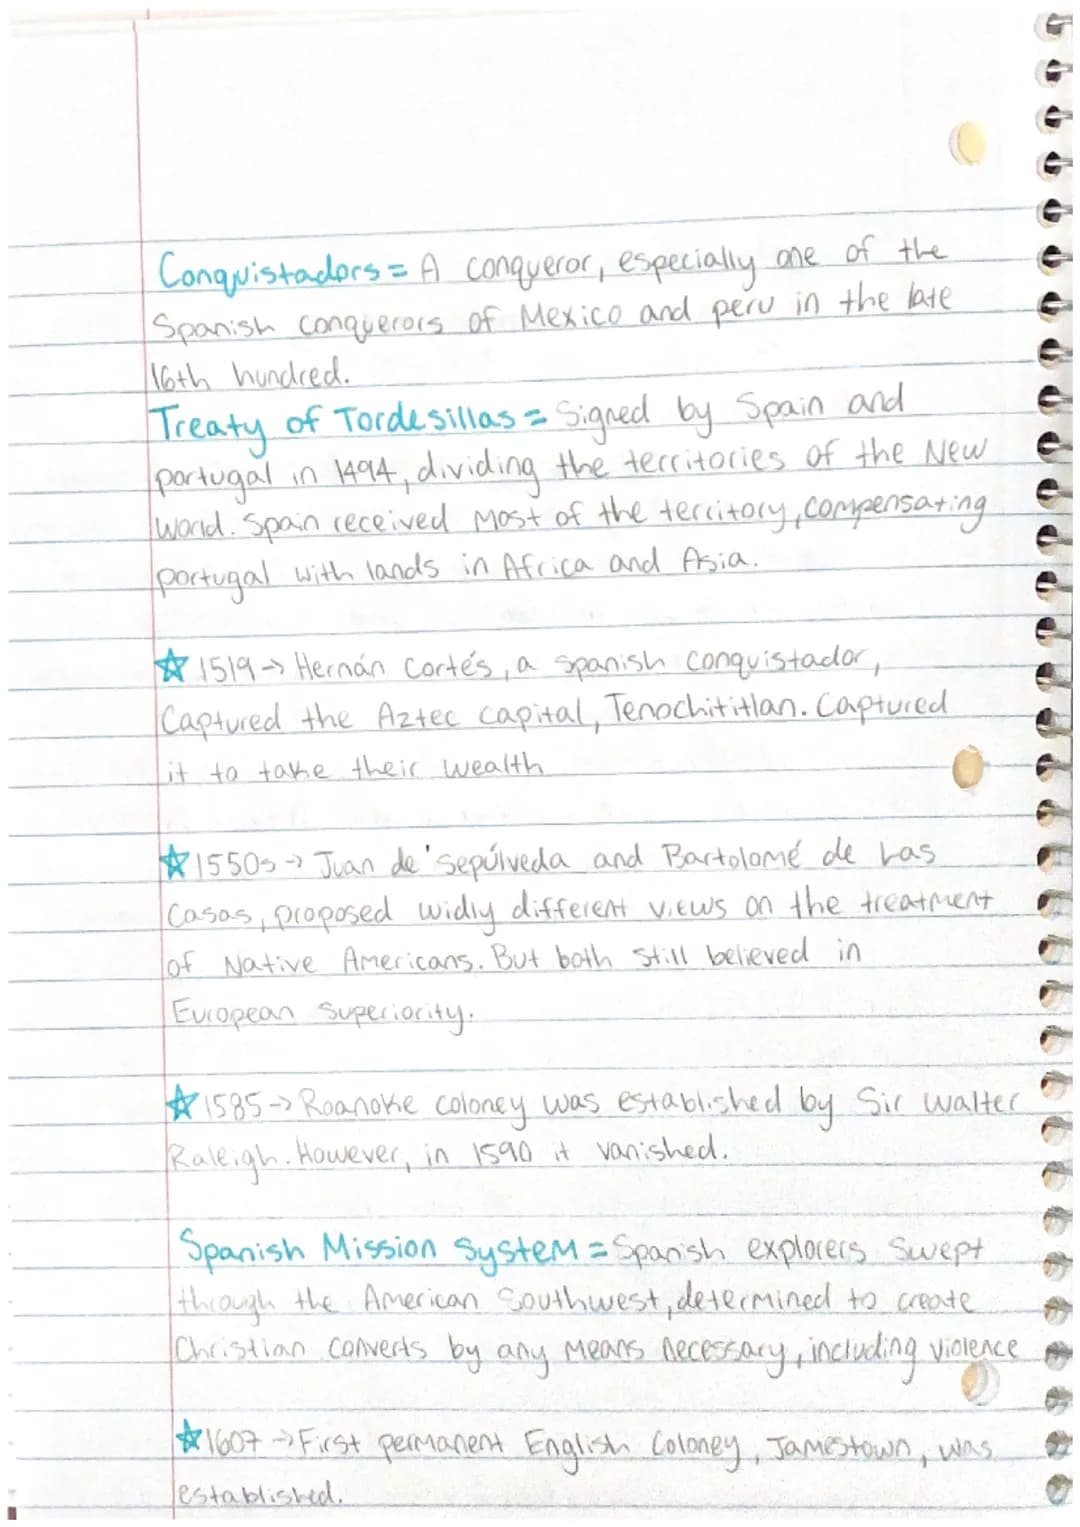 Conquistadors = A conqueror, especially one of the
Spanish conquerors of Mexico and peru in the late
16th hundred.
Treaty of Tordesillas = Signed by Spain and
portugal in 1494, dividing the territories of the New
World. Spain received Most of the territory, compensating
portugal with lands in Africa and Asia.
☆ 1519 → Hernán Cortés, a Spanish conquistador,
Captured the Aztec capital, Tenochititlan. Captured
it to take their wealth
☆ 1550s → Juan de Sepúlveda and Bartolomé de Las
Casas, proposed widly different views on the treatment
of Native Americans. But both still believed in
European Superiority.
☆ 1585 → Roanoke coloney was established by Sir Walter
Raleigh. However, in 1590 it vanished.
Spanish Mission System = Spanish explorers swept
through the American Southwest, determined to create
Christian converts by any Means necessary, including violence
☆ 1607 → First permanent English Coloney, Jamestown, was
established.